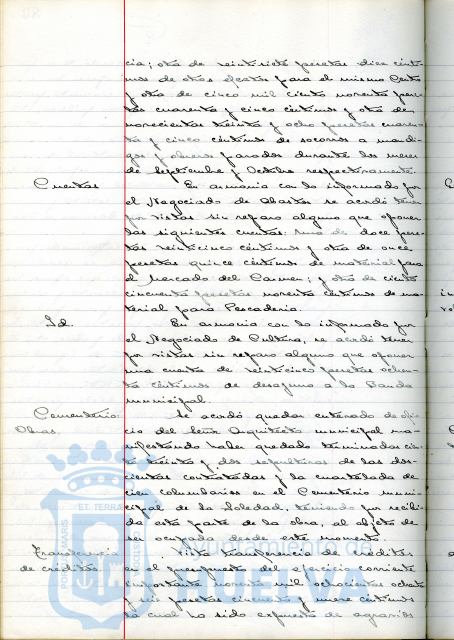 cia; otra de veintisiete pesetas diez cénti-
mos de otros efectos para el mismo Centro
y otra de cinco mil ciento noventa pese-
tas cuarenta y cinco céntimos y otra de
novecientas treinta y ocho pesetas cuaren-
ta y cinco céntimos de socorros a mendi-
gos y obreros parados durante los meses
de Septiembre y Octubre respectivamente.
Cuentas En armonia con lo informado por
el Negociado de Abastos se acordó tener
por vistas sin reparo alguno que oponer
las siguientes cuentas: una de doce pese-
tas veinticinco céntimos y otra de once
pesetas quince céntimos de material para
el Mercado del Carmen; y otra de ciento
cincuenta pesetas noventa céntimos de ma-
terial para Pescaderia.
Id. En armonia con lo informado por
el Negociado de Cultura, se acordó tener
por vistas sin reparo alguno que oponer
una cuenta de veinticinco pesetas ochen-
ta céntimos de desayuno a la Banda
municipal.
Cementerio: Se acordó quedar enterado de ofi-
Obras cio del Señor Arquitecto municipal ma-
nifestando haber quedado terminadas cien-
to treinta y dos sepulturas de las dos-
cientas contratadas y la cuartelada de
cien columbarios en el Cementerio muni-
cipal de la Soledad, teniendo por recibi-
da esta parte de la obra, al objeto de
ser ocupada desde este momento.
Transferencia Vista transferencia de créditos
de créditos en el presupuesto del ejercicio corriente
importante noventa mil ochocientas ochenta
y seis pesetas cincuenta y nueve céntimos
la cual ha sido expuesta de agravios
Ayuntamiento de
HUELVA
PORTUS MARIS
ET TERRAE
CUSTODIA